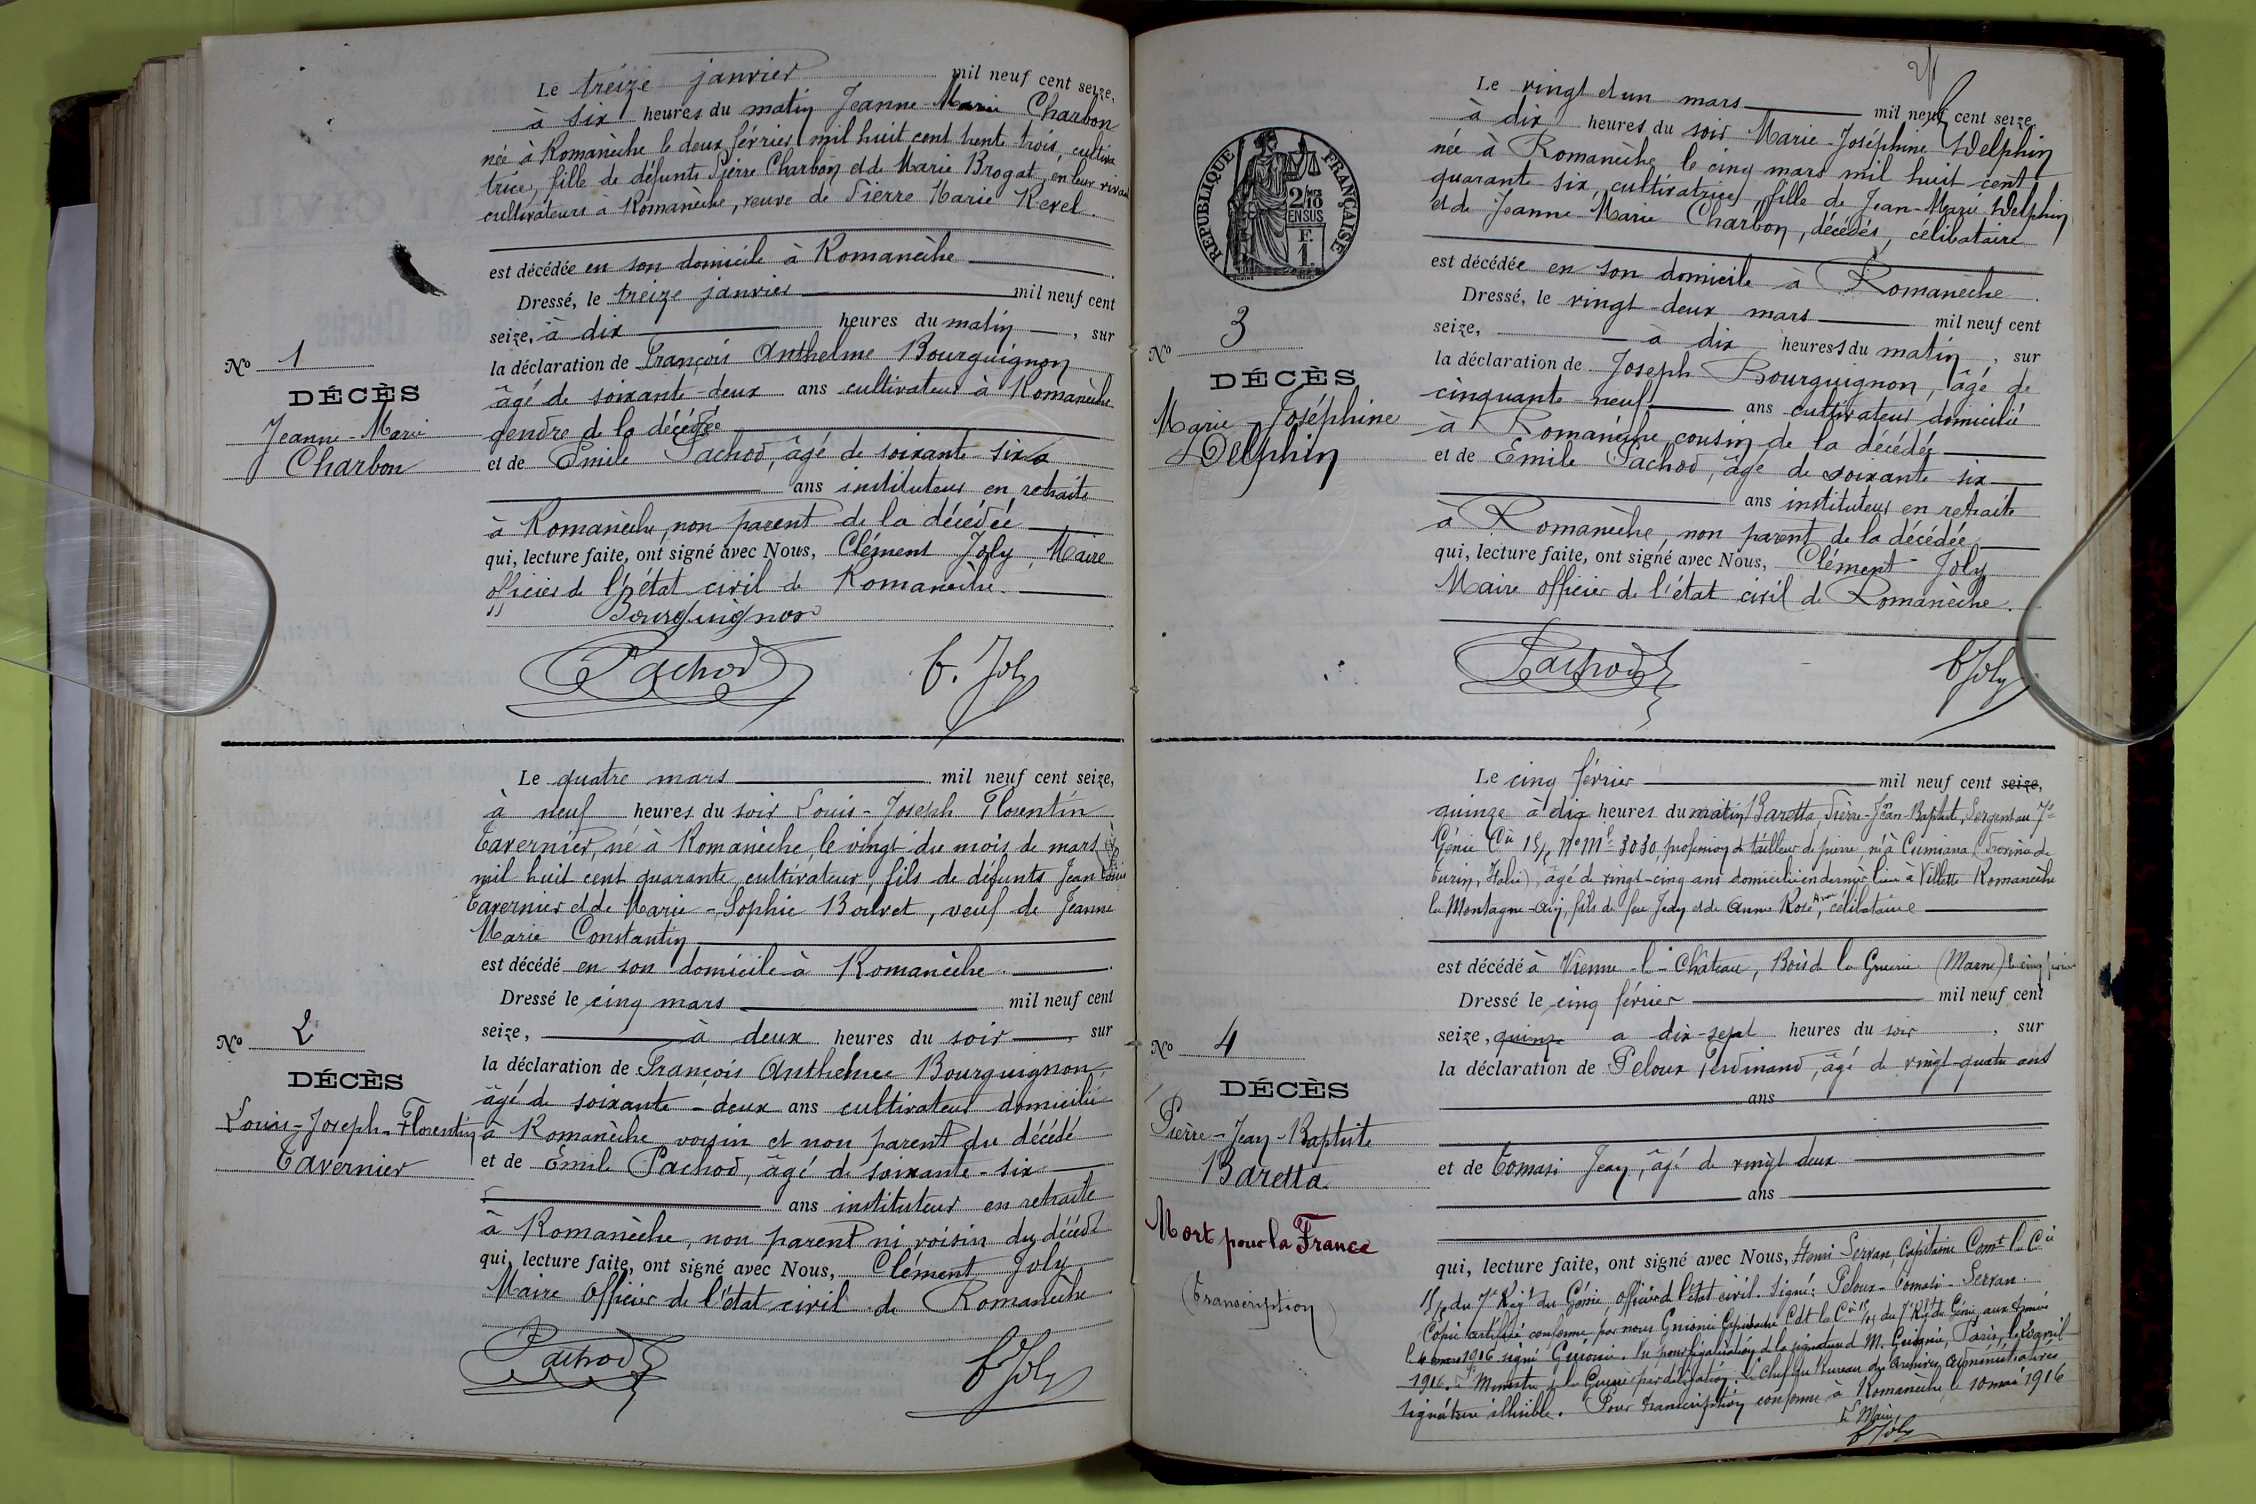 Le treize janvier mil neuf cent seize,
à six heures du matin Jeanne-Marie Charbon
née à Romanèche le deux février mil huit cent trente trois, cultiva
trice, fille de défunts Pierre Charbon et de Marie Brogat, en leur vivant
cultivateurs à Romanèche, veuve de Pierre Marie Revel.
est décédée en son domicile à Romanèche
Dressé, le treize janvier mil neuf cent
seize, à dix heures du matin, sur
la déclaration de François Anthelme Bourguignon
âgé de soixante-deux ans cultivateur à Romanèche
gendre de la décédée
et de Emile Pachod, âgé de soixante-six
ans instituteur en retraite
à Romanèche, non parent de la décédée
qui, lecture faite, ont signé avec Nous, Clément Joly, Maire
officier de l'état civil de Romanèche.
Bourguignon
Pachod C. Joly
No 1
DÉCÈS
Jeanne-Marie
Charbon
Le quatre mars mil neuf cent seize,
à neuf heures du soir Louis-Joseph Florentin
Tavernier, né à Romanèche, le vingt du mois de mars
mil huit cent quarante, cultivateur, fils de défunts Jean Louis
Tavernier et de Marie-Sophie Bouvet, veuf de Jeanne
Marie Constantin
est décédé en son domicile à Romanèche.
Dressé le cinq mars mil neuf cent
seize, à deux heures du soir, sur
la déclaration de François Anthelme Bourguignon,
âgé de soixante-deux ans cultivateur domicilié
à Romanèche voisin et non parent du décédé
et de Emile Pachod, âgé de soixante-six
ans instituteur en retraite
à Romanèche, non parent ni voisin du décédé
qui, lecture faite, ont signé avec Nous, Clément Joly
Maire Officier de l'état civil de Romanèche
Pachod C Joly
No 2
DÉCÈS
Louis-Joseph-Florentin
Tavernier
RÉPUBLIQUE FRANÇAISE
2/10
EN SUS
F.
1.
Le vingt et un mars mil neuf cent seize
à dix heures du soir Marie-Joséphine Delphin
née à Romanèche le cinq mars mil huit cent
quarante six, cultivatrice, fille de Jean-Marie Delphin
et de Jeanne-Marie Charbon, décédés, célibataire
est décédée en son domicile à Romanèche.
Dressé, le vingt-deux mars mil neuf cent
seize, à dix heures du matin, sur
la déclaration de Joseph Bourguignon, âgé de
cinquante-neuf ans cultivateur domicilié
à Romanèche, cousin de la décédée
et de Emile Pachod, âgé de soixante six
ans instituteur en retraite
à Romanèche, non parent de la décédée,
qui, lecture faite, ont signé avec Nous, Clément Joly
Maire officier de l'état civil de Romanèche.
Pachod C Joly
No 3
DÉCÈS
Marie Joséphine
Delphin
Le cinq février mil neuf cent seize,
quinze à dix heures du matin, Baretta, Pierre-Jean-Baptiste, Sergent au 7e
Génie Cie 15/2 No Mle 3030, profession de tailleur de pierre né à Cumiana (Province de
Turin, Italie), âgé de vingt-cinq ans domicilié en dernier lieu à Villette Romanèche
la Montagne-Ain, fils de feu Jean et de Anne Rose, célibataire
est décédé à Vienne-le-Château, Bois de la Gruerie (Marne) le cinq février
Dressé le cinq février mil neuf cent
seize, quinze a dix-sept heures du soir, sur
la déclaration de Peloux Ferdinand, âgé de vingt-quatre ans
ans
et de Tomasi Jean, âgé de vingt deux
ans
qui, lecture faite, ont signé avec Nous, Henri Servan, Capitaine Comt la Cie
15/2 du 7e Régt du Génie, Officier de l'état civil. Signé: Peloux-Tomasi-Servan.
Copie certifiée conforme par nous Capitaine Cdt la Cie 15/2 du 7e Rgt du Génie, aux Armées
le mars 1916 signé. Vu pour légalisation de la signature de M. Paris, le avril
1916. Ministre de la Guerre par délégation, le chef du bureau des Archives Administratives
signature illisible. Pour transcription conforme à Romanèche, le 10 mai 1916
Le Maire,
C Joly
No 4
DÉCÈS
Pierre-Jean-Baptiste
Baretta
Mort pour la France
(Transcription)